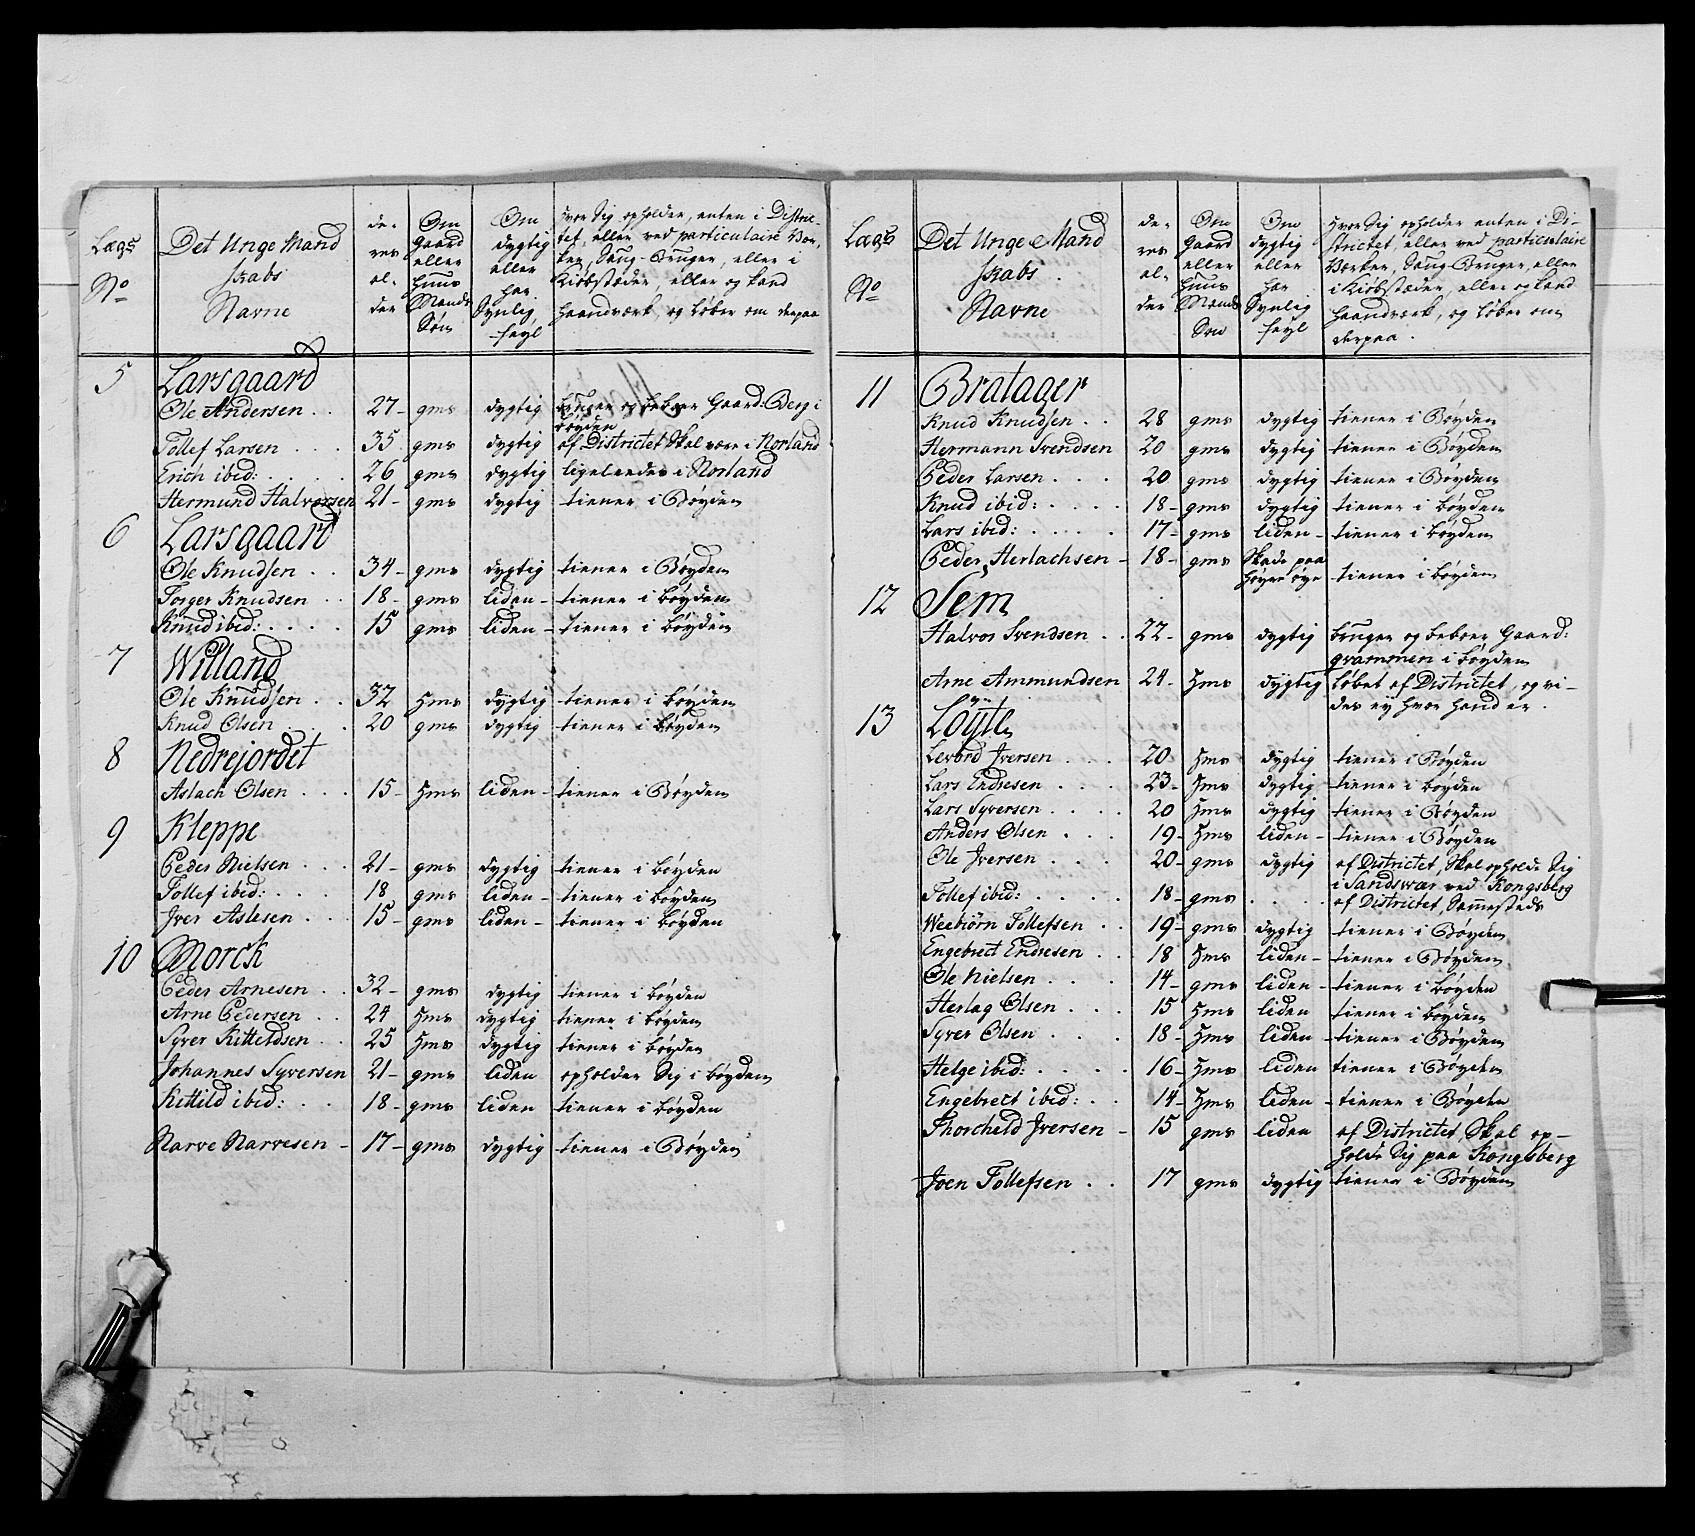 Lægs No
Det Unge Mandskabs Navne
deres alder
Om Gaard eller Huus Mands Søn
Om dygtig eller har Synlig feyl
Hvor Sig opholder, enten i Districtet, eller ved particulaire Værker, Saug-Bruger, eller i Kiøbstæder, eller og kand Haandværk, og løber om derpaa
5 Larsgaard
Ole Andersen . . 27 - gms dygtig bruger og beboer Gaard: Berg i bøyden
Tollef Larsen . . . 35 gms dygtig af Districtet Skal være i Norland
Erich ibid: . . . . 26 gms dygtig ligeleedes i Norland
Hermund Halvorsen 21 - gms dygtig tiener i Bøyden
6 Larsgaard
Ole Knudsen . . 34 - gms dygtig tiener i Bøyden
Torger Knudsen . . 18 - gms liden - tiener i bøyden
Knud ibid: . . . . 15 gms liden - tiener i bøyden
7 Willand
Ole Knudsen . . 32 Hms dygtig tiener i bøyden
Knud Olsen . . . . 20 gms dygtig tiener i bøyden
8 Nedrejordet
Aslach Olsen . . . 15 - Hms liden - tiener i Bøyden
9 Kleppe
Peder Nielsen . . . 21 - gms dygtig tiener i bøyden
Tollef ibid: . . . . 18 gms liden - tiener i bøyden
Iver Aslesen . . . 15 - gms liden - tiener i bøyden
10 Morck
Peder Arnesen . . 32 - gms dygtig tiener i bøyden
Arne Pedersen . . 24 Hms dygtig tiener i bøyden
Syver Kitteldsen . . 25 Hms dygtig tiener i bøyden
Johannes Syversen 21 - gms liden opholder Sig i bøyden
Kittild ibid: . . . 18 - gms liden tiener i bøyden
Narve Narvesen - 17 - gms dygtig tiener i Bøyden
Lægs No
Det Unge Mandskabs Navne
deres alder
Om Gaard eller Huus Mands Søn
Om dygtig eller har Synlig feyl
Hvor Sig opholder enten i Districtet, eller ved particulaire Værker, Saug-Bruger, eller i Kiøbstæder, eller og kand Haandværk, og løber om derpaa.
11 Bratager
Knud Knudsen . . 28 gms dygtig tiener i Bøyden
Hermann Svendsen 20 gms dygtig tiener i Bøyden
Peder Larsen . . . 20 gms dygtig tiener i Bøyden
Knud ibid: . . . . 18 - gms dygtig tiener i bøyden
Lars ibid: . . . . . 17 - gms liden - tiener i bøyden
Peder Herlachsen - 18 - gms Skade paa høyre øye tiener i bøyden
12 Sem
Halvor Svendsen . . 22 - gms dygtig bruger og beboer Gaard: qvammen i bøyden
Arne Ammundsen 24 - Hms dygtig løbet af Districtet, og vides ey hvor hand er.
13 Løyte
Levord Iversen . . . 20 Hms dygtig tiener i Bøyden
Lars Endresen . . . . 23 - Hms dygtig tiener i bøyden
Lars Syversen . . . . 20 Hms dygtig tiener i Bøyden
Anders Olsen . . . 19 - Hms liden - tiener i Bøyden
Ole Iversen . . . . 20 - gms dygtig af Districtet, Skal opholde Sig i Sandswær ved Kongsberg
Tollef ibid: . . . . . 18 - gms . . . . af Districtet, Sammesteds
Weebiørn Tollefsen . . 19 - gms dygtig tiener i Bøyden
Engebrect Endresen . . 18 Hms liden - tiener i Bøyden
Ole Nielsen . . . . 14 - gms liden - tiener i bøyden
Herlag Olsen . . . 15 Hms liden tiener i bøyden
Syver Olsen . . . . 18 - Hms liden - tiener i Bøyden
Helge ibid: . . . . 16 - Hms liden tiener i Bøyden
Engebrect ibid: . . 14 - Hms liden - tiener i Bøyden
Thorchild Iversen - 15 gms liden af Districtet, Skal opholde Sig paa Kongsberg
Joen Tollefsen . . 17 gms dygtig tiener i Bøyden